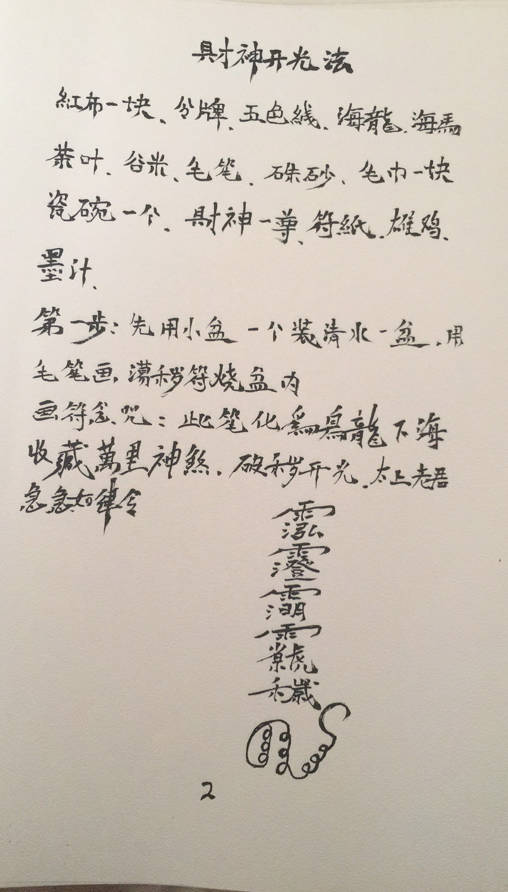 財神开光法
紅布一块、分牌、五色綫、海龍、海馬
茶叶、谷米、毛笔、硃砂、毛巾一块
瓷碗一个、財神一尊、符紙、雄鸡、
墨汁、
第一步：先用小盆一个装清水一盆，用
毛笔画 秽符烧盆内
画符念咒：此笔化為烏龍下海
收藏萬里神煞，破秽开光，太上老君
急急如律令
穢
2